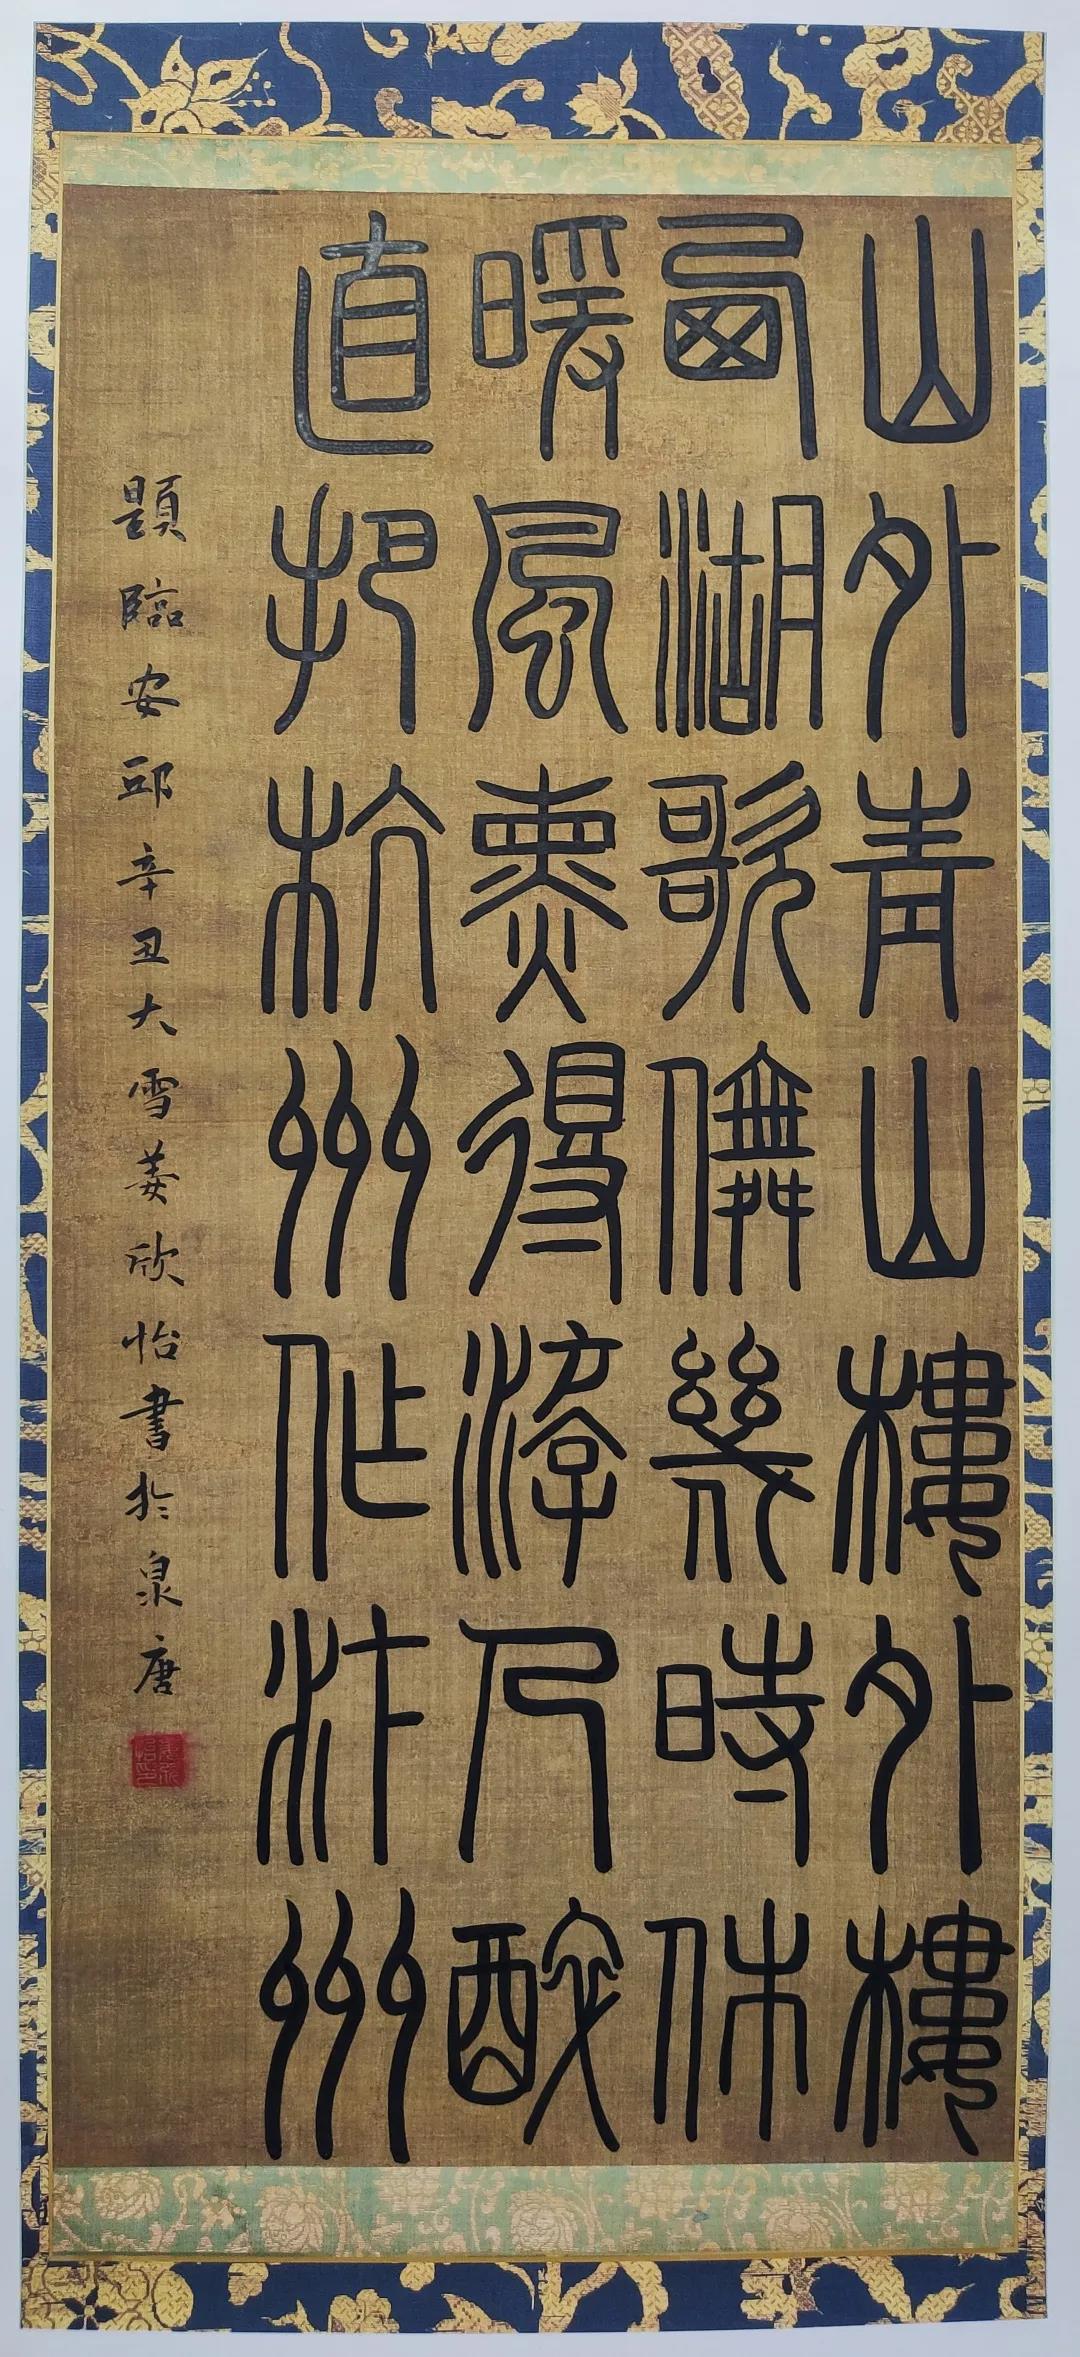 山外青山樓外樓
西湖歌儛幾時休
暖風熏得游人醉
直把杭州作汴州
題臨安邸辛丑大雪姜欣怡書於泉唐
姜欣怡印